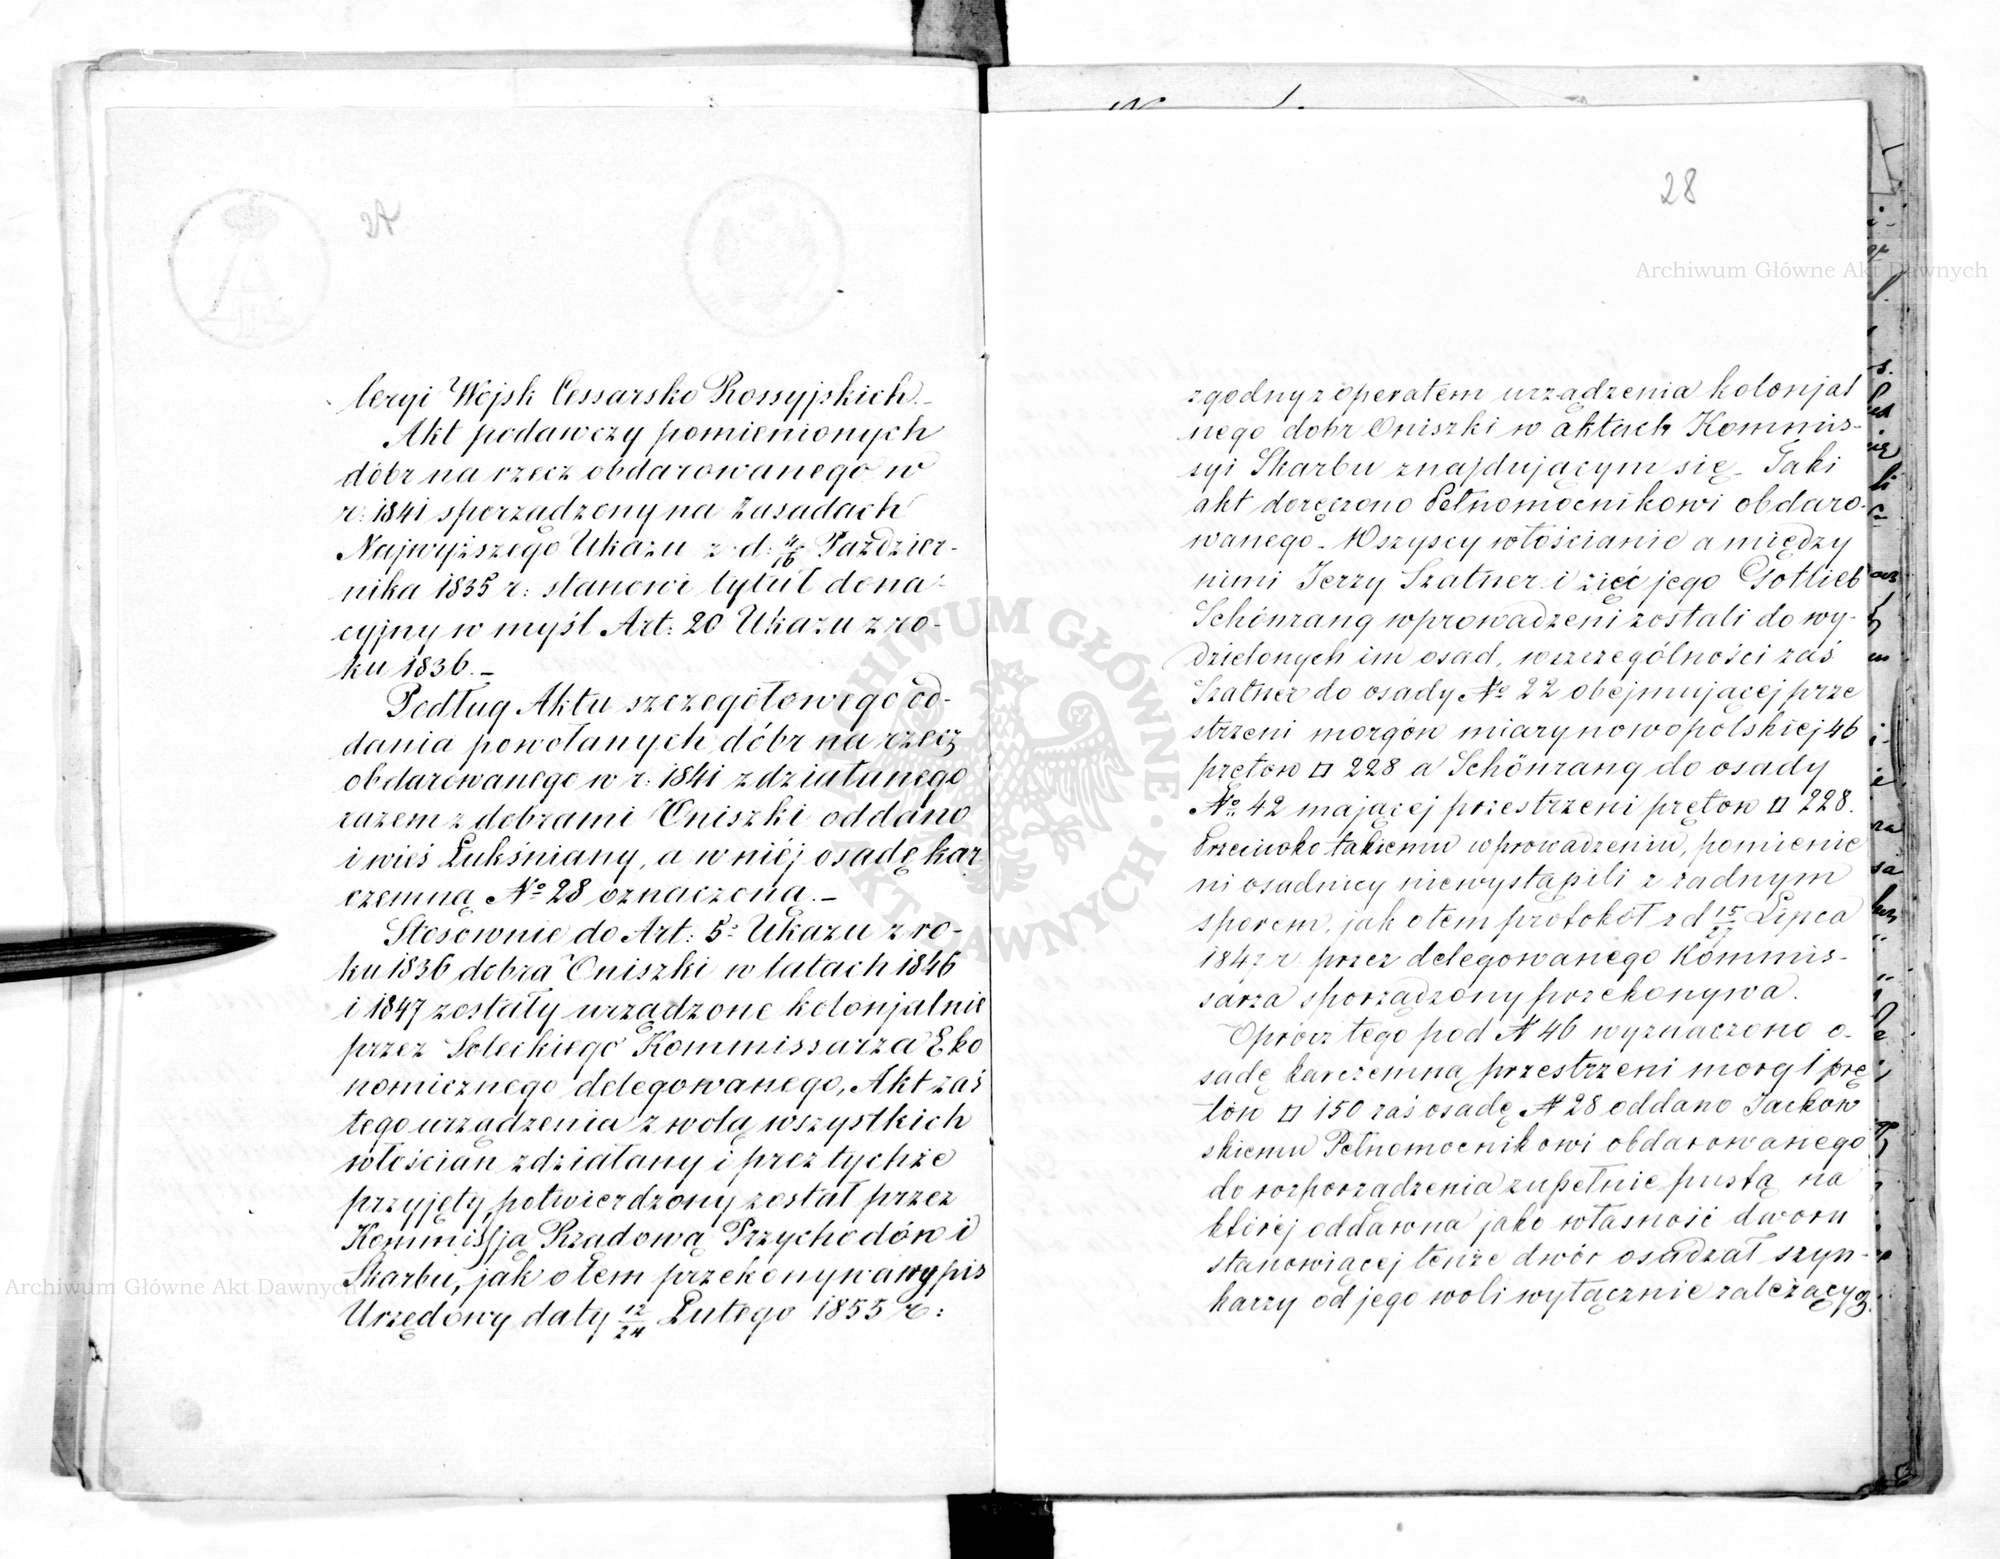 leryi Wojsk Cessarsko Rossyjskich._
Akt podawczy pomienionych
dóbr na rzecz obdarowanego w
r: 1841 sporządzony na zasadach
Najwyższego Ukazu z d: 4/16 Paździer-
nika 1835 r: stanowi tytuł dona-
cyjny w myśl Art: 20 Ukazu z ro-
ku 1836._
Podług Aktu szczegółowego od-
dania powołanych dóbr na rzecz
obdarowanego w r: 1841 zdziałanego
razem z dobrami Oniszki oddano
i wieś Łukśniany, a w niéj osadę kar
czemną No 28 oznaczoną._
Stosownie do Art: 5o Ukazu z ro-
ku 1836 dobra Oniszki w latach 1846
i 1847 zostały urządzone kolonjalnie
przez Soleckiego Kommissarza Eko
nomicznego delegowanego, Akt zaś
tego urządzenia z wolą wszystkich
włościan zdziałany i przez tychże
przyjęty, potwierdzony został przez
Kommissją Rządową Przychodów i
Skarbu, jak o tem przekonywa wypis
Urzędowy daty 12/24 Lutego 1855 r:
28
zgodny z operatem urządzenia kolonjal
nego dobr Oniszki w aktach Kommis-
syi Skarbu znajdującym się_ Taki
akt doręczono Pełnomocnikowi obdaro-
wanego_ Wszyscy włościanie a między
nimi Jerzy Szatner i zięć jego Gotlieb
Schönrang wprowadzeni zostali do wy-
dzielonych im osad, wszczególności zaś
Szatner do osady No 22 obejmującej prze
strzeni morgów miary nowopolskiej 46
prętów □ 228 a Schönrang do osady
No 42 mającej przestrzeni prętów □ 228.
Przeciwko takiemu wprowadzeniu, pomienie
ni osadnicy niewystąpili z żadnym
sporem, jak o tem protokół z d 15/27 Lipca
1847 r przez delegowanego Kommis-
sarza sporządzony przekonywa.
Oprócz tego pod N 46 wyznaczono o-
sadę karczemną przestrzeni morg 1 prę
tów □ 150 zaś osadę N 28 oddano Jackow
skiemu Pełnomocnikowi obdarowanego
do rozporządzenia zupełnie pustą na
któréj oddawna jako własność dworu
stanowiącej tenże dwór osadzał szyn-
karzy od jego woli wyłącznie zależącyc
Archiwum Główne Akt Dawnych
Archiwum Główne Akt Dawnych
ARCHIWUM GŁÓWNE • AKT DAWNYCH •